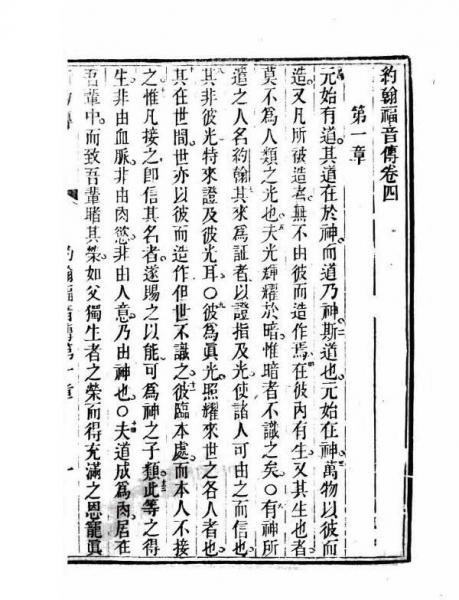 約翰福音傳卷四
第一章
元始有道其道在於神而道乃神斯道也元始在神萬物以彼而
造又凡所被造者無不由彼而造作焉在彼內有生又其生也者
莫不為人類之光也夫光輝耀於暗惟暗者不識之矣○有神所
遣之人名約翰其來為証者以證指及光使諸人可由之而信也
其非彼光特來證及彼光耳○彼為眞光照耀來世之各人者也
其在世間世亦以彼而造作但世不識之彼臨本處而本人不接
之惟凡接之卽信其名者遂賜之以能可為神之子類此等之得
生非由血脈非由肉慾非由人意乃由神也○夫道成為肉居在
吾輩中而致吾輩睹其榮如父獨生者之榮而得充滿之恩寵眞
約翰福音傳第一章
一